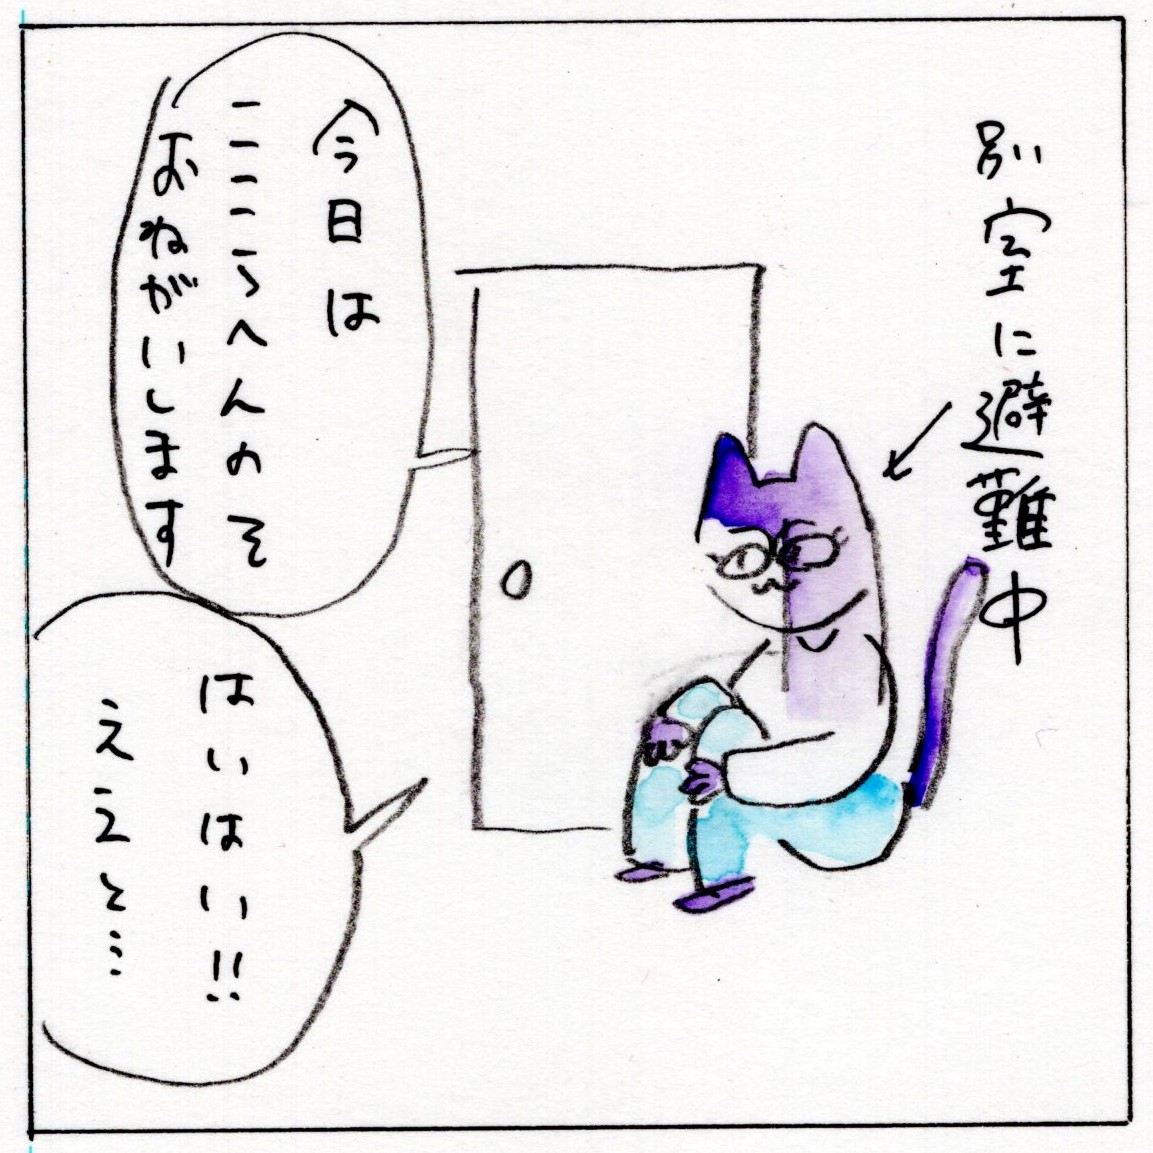 別室に避難中
今日は
ここらへんのを
おねがいします
はいはい!!
ええと…